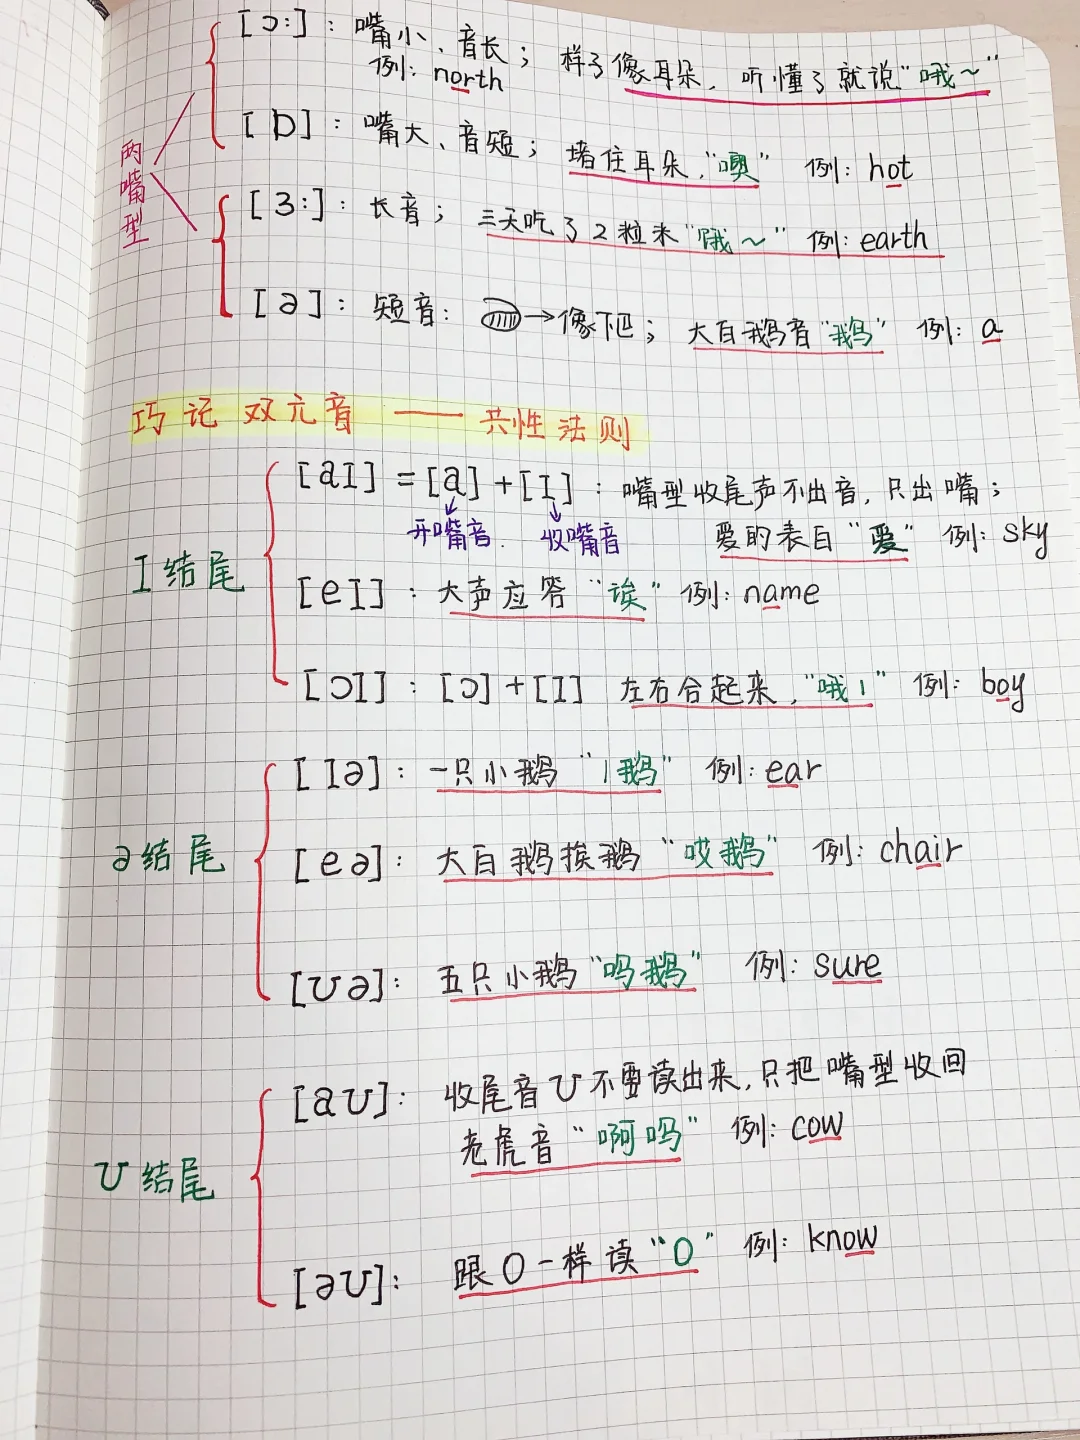 [ɔ:]：嘴小、音长；样子像耳朵，听懂了就说“哦～”
例：north
[ɒ]：嘴大、音短；堵住耳朵，“噢” 例：hot
两嘴型
[ɜ:]：长音；三天吃了2粒米“哦～” 例：earth
[ə]：短音：→像下巴；大白鹅音“鹅” 例：a
巧记双元音——共性法则
[aɪ]=[a]+[ɪ]：嘴型收尾声不出音，只出嘴；
开嘴音. 收嘴音 爱的表白“爱” 例：sky
ɪ结尾
[eɪ]：大声应答“诶” 例：name
[ɔɪ]：[ɔ]+[ɪ] 左右合起来，“哦1” 例：boy
[ɪə]：一只小鹅“1鹅” 例：ear
ə结尾
[eə]：大白鹅挨鹅“哎鹅” 例：chair
[ʊə]：五只小鹅“呜鹅” 例：sure
[aʊ]：收尾音ʊ不要读出来，只把嘴型收回
老虎音“啊呜” 例：cow
ʊ结尾
[əʊ]：跟O一样读“O” 例：know